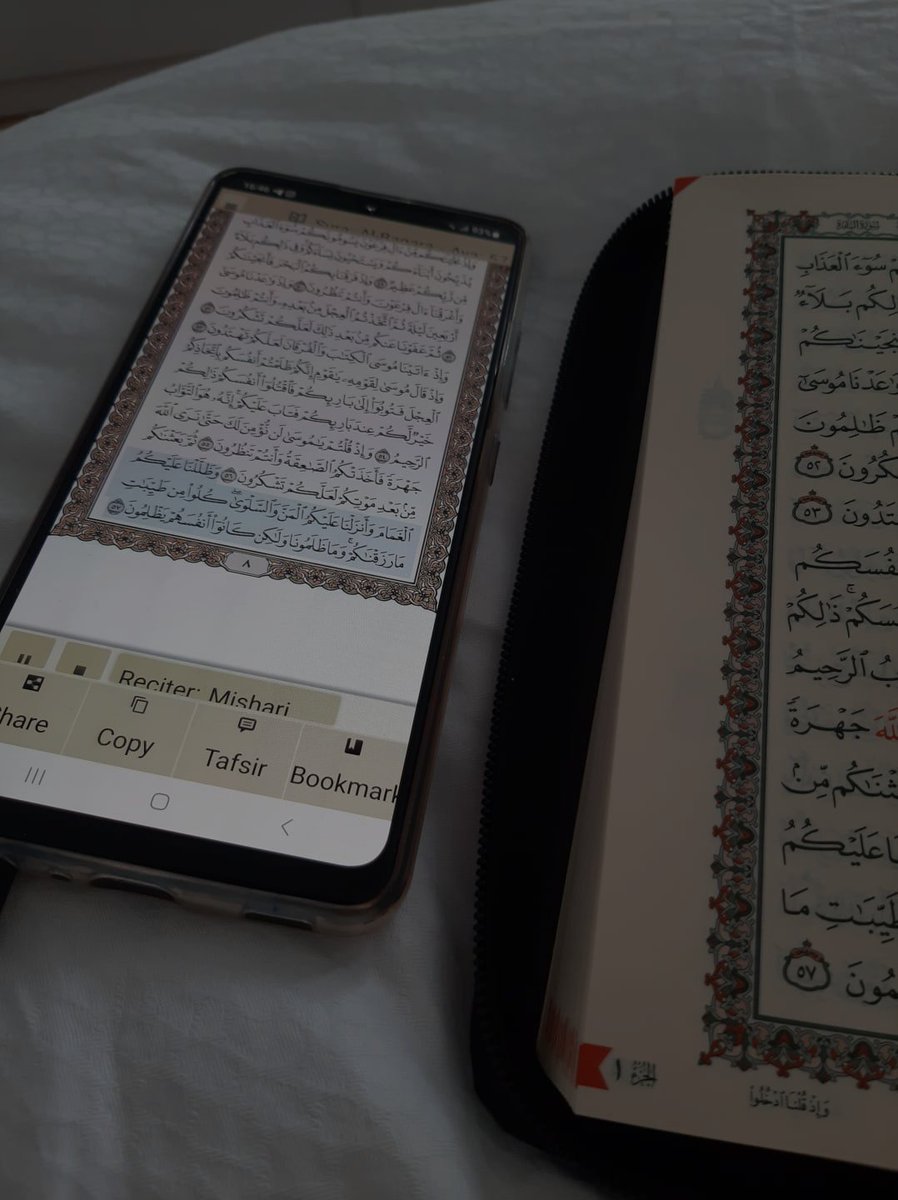 وَإِذْ نَجَّيْنَٰكُم مِّنْ ءَالِ فِرْعَوْنَ يَسُومُونَكُمْ سُوٓءَ ٱلْعَذَابِ
يُذَبِّحُونَ أَبْنَآءَكُمْ وَيَسْتَحْيُونَ نِسَآءَكُمْ وَفِى ذَٰلِكُم بَلَآءٌ
مِّن رَّبِّكُمْ عَظِيمٌ ٤٩ وَإِذْ فَرَقْنَا بِكُمُ ٱلْبَحْرَ فَأَنجَيْنَٰكُمْ
وَأَغْرَقْنَآ ءَالَ فِرْعَوْنَ وَأَنتُمْ تَنظُرُونَ ٥٠ وَإِذْ وَٰعَدْنَا مُوسَىٰٓ
أَرْبَعِينَ لَيْلَةً ثُمَّ ٱتَّخَذْتُمُ ٱلْعِجْلَ مِنۢ بَعْدِهِۦ وَأَنتُمْ ظَٰلِمُونَ
٥١ ثُمَّ عَفَوْنَا عَنكُم مِّنۢ بَعْدِ ذَٰلِكَ لَعَلَّكُمْ تَشْكُرُونَ ٥٢
وَإِذْ ءَاتَيْنَا مُوسَى ٱلْكِتَٰبَ وَٱلْفُرْقَانَ لَعَلَّكُمْ تَهْتَدُونَ ٥٣
وَإِذْ قَالَ مُوسَىٰ لِقَوْمِهِۦ يَٰقَوْمِ إِنَّكُمْ ظَلَمْتُمْ أَنفُسَكُم بِٱتِّخَاذِكُمُ
ٱلْعِجْلَ فَتُوبُوٓا۟ إِلَىٰ بَارِئِكُمْ فَٱقْتُلُوٓا۟ أَنفُسَكُمْ ذَٰلِكُمْ
خَيْرٌ لَّكُمْ عِندَ بَارِئِكُمْ فَتَابَ عَلَيْكُمْ إِنَّهُۥ هُوَ ٱلتَّوَّابُ
ٱلرَّحِيمُ ٥٤ وَإِذْ قُلْتُمْ يَٰمُوسَىٰ لَن نُّؤْمِنَ لَكَ حَتَّىٰ نَرَى ٱللَّهَ
جَهْرَةً فَأَخَذَتْكُمُ ٱلصَّٰعِقَةُ وَأَنتُمْ تَنظُرُونَ ٥٥ ثُمَّ بَعَثْنَٰكُم
مِّنۢ بَعْدِ مَوْتِكُمْ لَعَلَّكُمْ تَشْكُرُونَ ٥٦ وَظَلَّلْنَا عَلَيْكُمُ
ٱلْغَمَامَ وَأَنزَلْنَا عَلَيْكُمُ ٱلْمَنَّ وَٱلسَّلْوَىٰ ۖ كُلُوا۟ مِن طَيِّبَٰتِ
مَا رَزَقْنَٰكُمْ ۖ وَمَا ظَلَمُونَا وَلَٰكِن كَانُوٓا۟ أَنفُسَهُمْ يَظْلِمُونَ ٥٧
٨
Reciter: Mishari
hare
Copy
Tafsir
Bookmark
سُورَةُ البَقَرَةِ
مْ سُوٓءَ ٱلْعَذَابِ
لِكُم بَلَآءٌ
نجَيْنَٰكُمْ
وَٰعَدْنَا مُوسَىٰٓ
مْ ظَٰلِمُونَ
كُرُونَ ٥٢
تَدُونَ ٥٣
نفُسَكُم
سَكُمْ ذَٰلِكُمْ
بُ ٱلرَّحِيمُ
للَّهَ جَهْرَةً
ثْنَٰكُم مِّنۢ
ا عَلَيْكُمُ
طَيِّبَٰتِ مَا
مُونَ ٥٧
الجُزْءُ ١
وَإِذْ قُلْنَا ٱدْخُلُوا۟